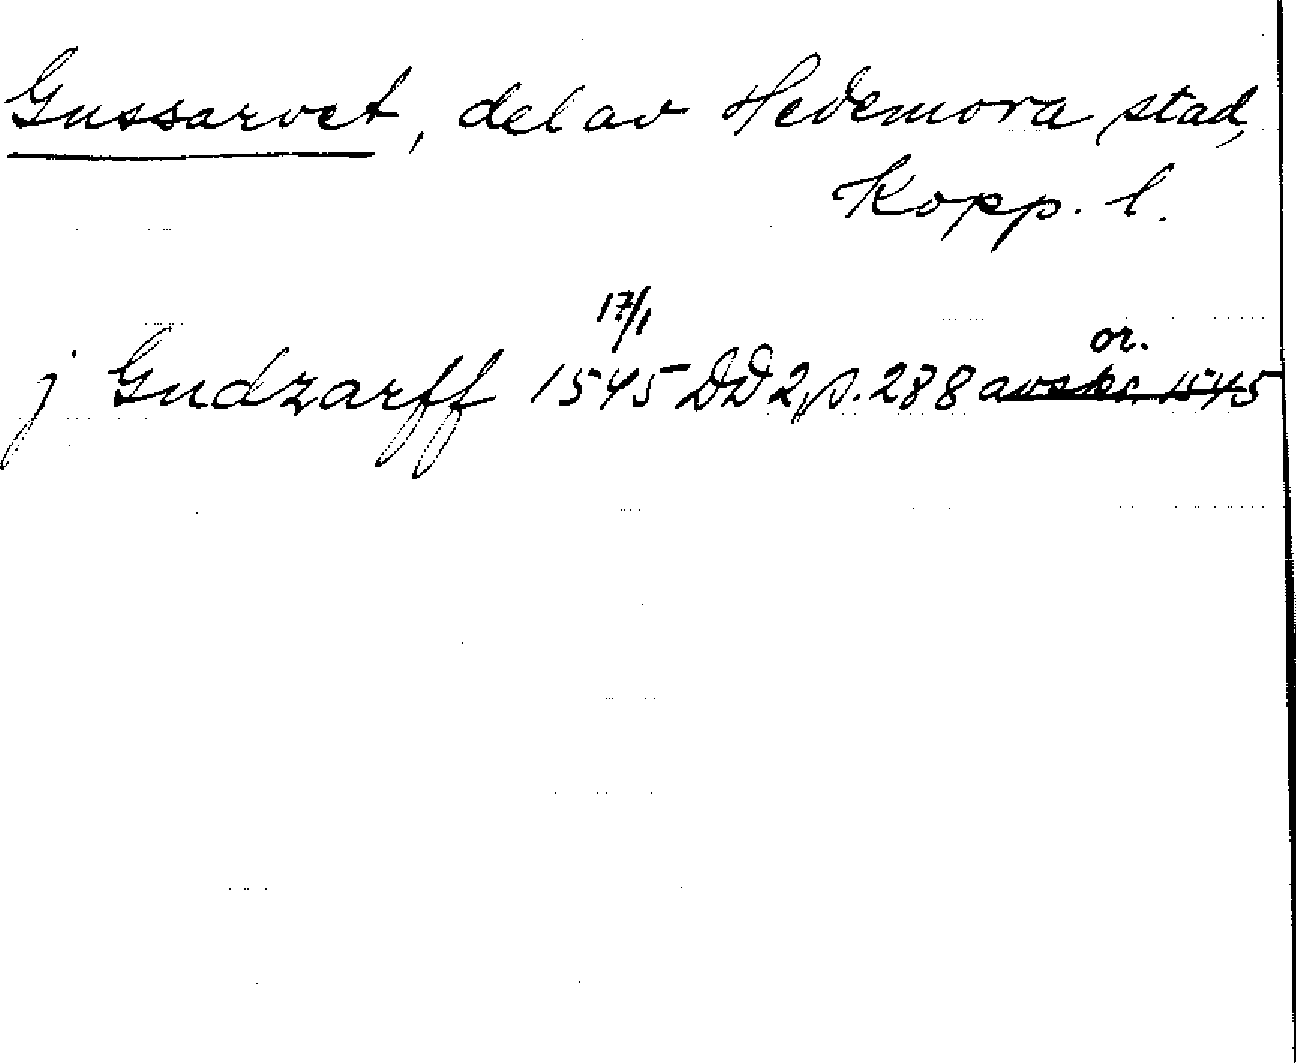 Gussarvet, del av Hedemora stad,
Kopp. l.
17/1
or.
j Gudzarff 1545 DD 2, p. 288 avskr. 1545